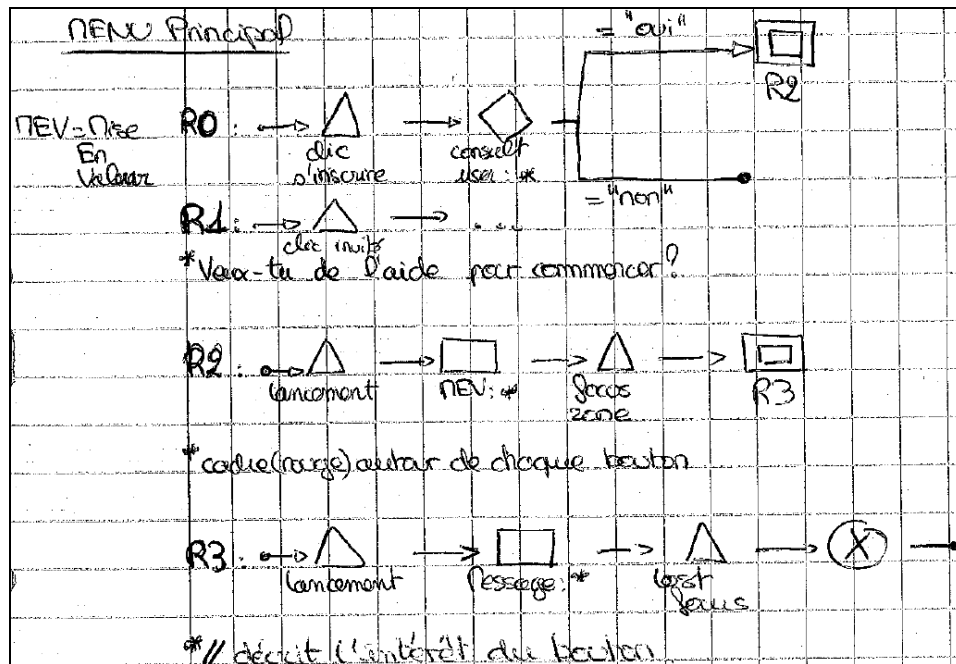 MENU Principal
= "oui"
R2
MEV = Mise
En
Valeur
R0 :
clic
s'inscrire
consult
user : *
= "non"
R1 :
clic invité
...
*Veux-tu de l'aide pour commencer ?
R2 :
lancement
MEV : *
focus
zone
R3
*cadre (rouge) autour de chaque bouton
R3 :
lancement
Message : *
lost
focus
X
*// décrit l'intérêt du bouton